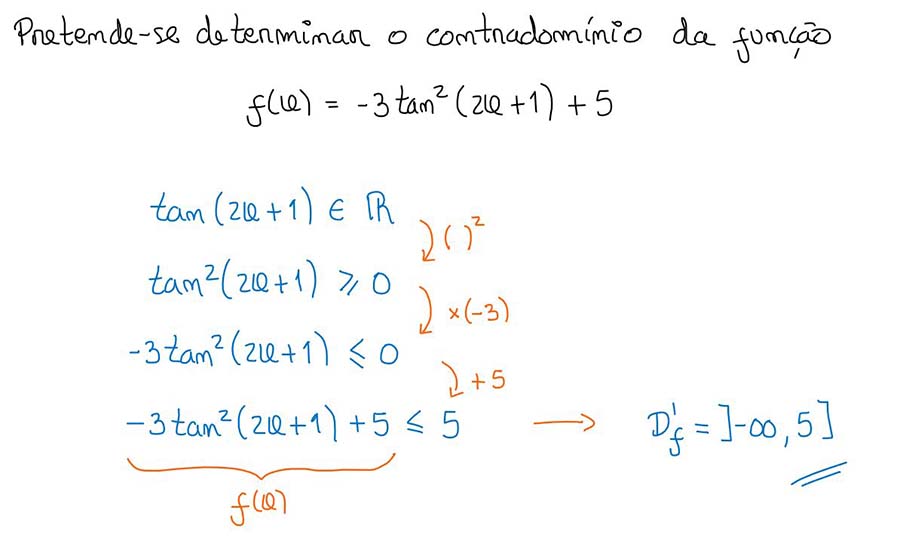 Pretende-se determinar o contradomínio da função
f(x) = -3tan²(2x+1) + 5
tan(2x+1) ∈ ℝ
( )²
tan²(2x+1) ⩾ 0
×(-3)
-3tan²(2x+1) ⩽ 0
+5
-3tan²(2x+1) + 5 ⩽ 5 → D'f = ]-∞, 5]
f(x)